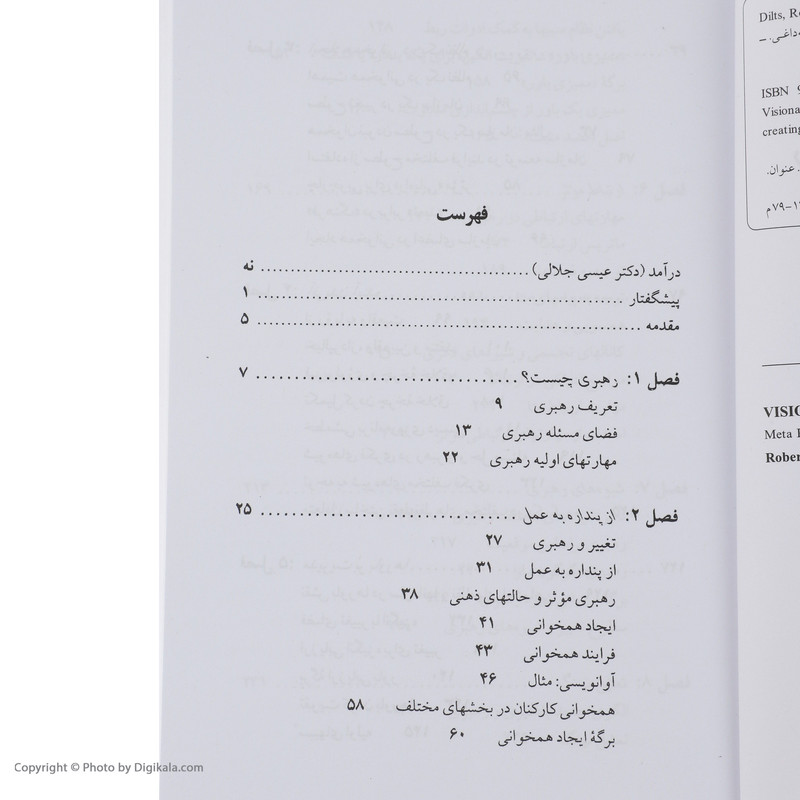 فهرست
درآمد (دکتر عیسی جلالی) ............ نه
پیشگفتار ............ ۱
مقدمه ............ ۵
فصل ۱: رهبری چیست؟ ............ ۷
تعریف رهبری ۹
فضای مسئله رهبری ۱۳
مهارتهای اولیه رهبری ۲۲
فصل ۲: از پنداره به عمل ............ ۲۵
تغییر و رهبری ۲۷
از پنداره به عمل ۳۱
رهبری مؤثر و حالتهای ذهنی ۳۸
ایجاد همخوانی ۴۱
فرایند همخوانی ۴۳
آوانویسی: مثال ۴۶
همخوانی کارکنان در بخشهای مختلف ۵۸
برگهٔ ایجاد همخوانی ۶۰
Dilts, R
ISBN 9
Visiona
creating
عنوان.
۷۹-۱۲م
VISIO
Meta
Rober
Copyright © Photo by Digikala.com